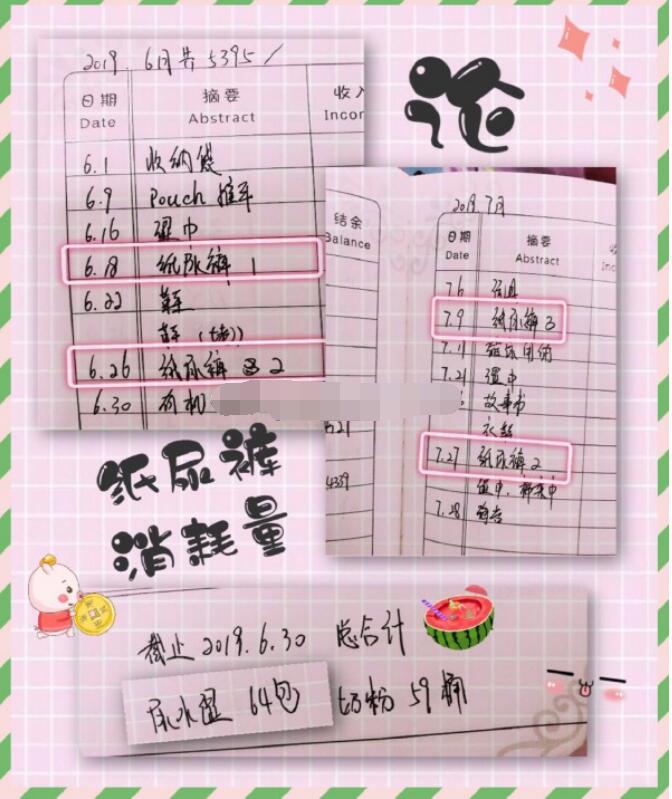 2019. 6月共5395/
日期 摘要 收入
Date Abstract Incom
6.1 收纳袋
6.9 Pouch 推车
6.16 湿巾
6.18 纸尿裤 1
6.22
6.26 纸尿裤 2
6.30 有机
论
2019 7月
结余 日期 摘要
Balance Date Abstract Inc
7.6
7.9 纸尿裤 3
7.11
7.21 湿巾
故事书
7.27 纸尿裤 2
湿巾、棉柔巾
7.28
4339
纸尿裤
消耗量
截止 2019.6.30 总合计
尿不湿 64包 奶粉 59桶